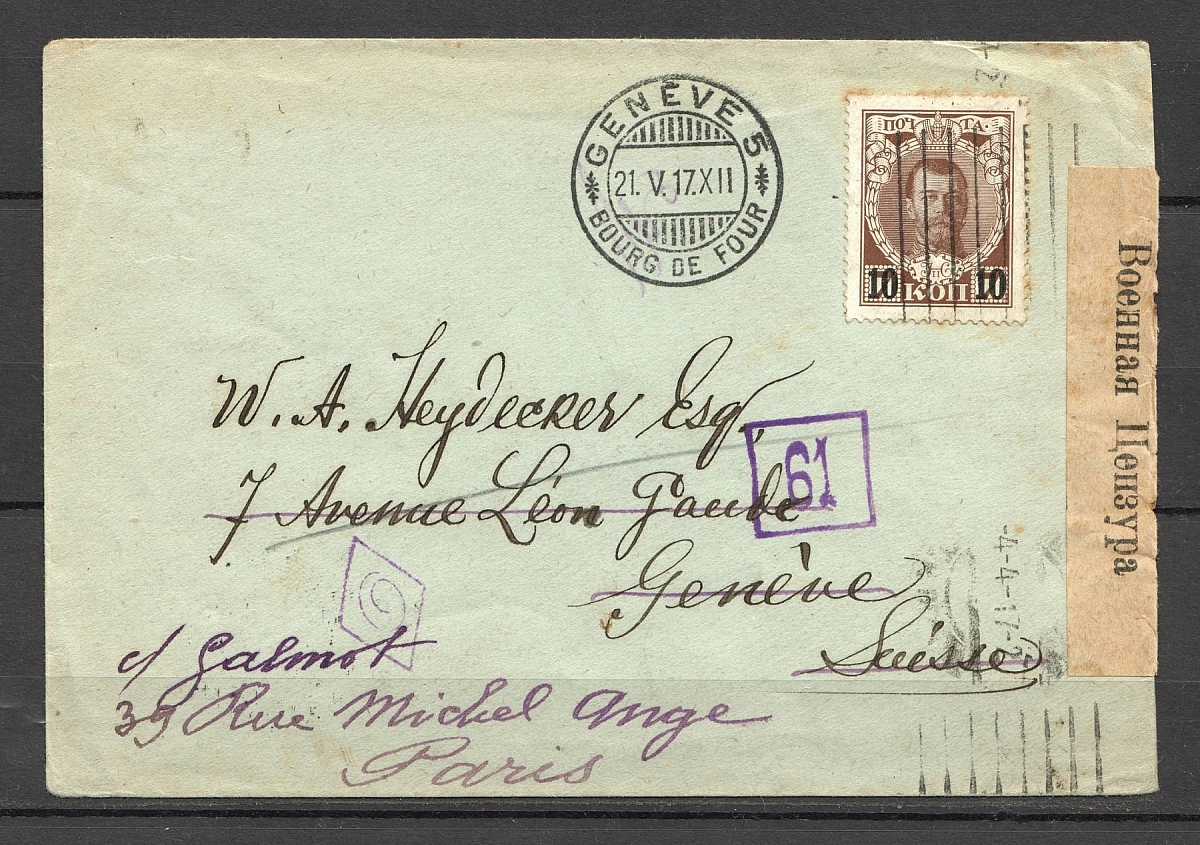 GENÈVE 5
21. V. 17.XII
BOURG DE FOUR
ПОЧТА.
10 КОП 10
Военная Цензура
W. A. Heydecker Esq.
61
7 Avenue Léon Gaude
Genève
Suisse
c/ Galmot
39 Rue Michel Ange
Paris